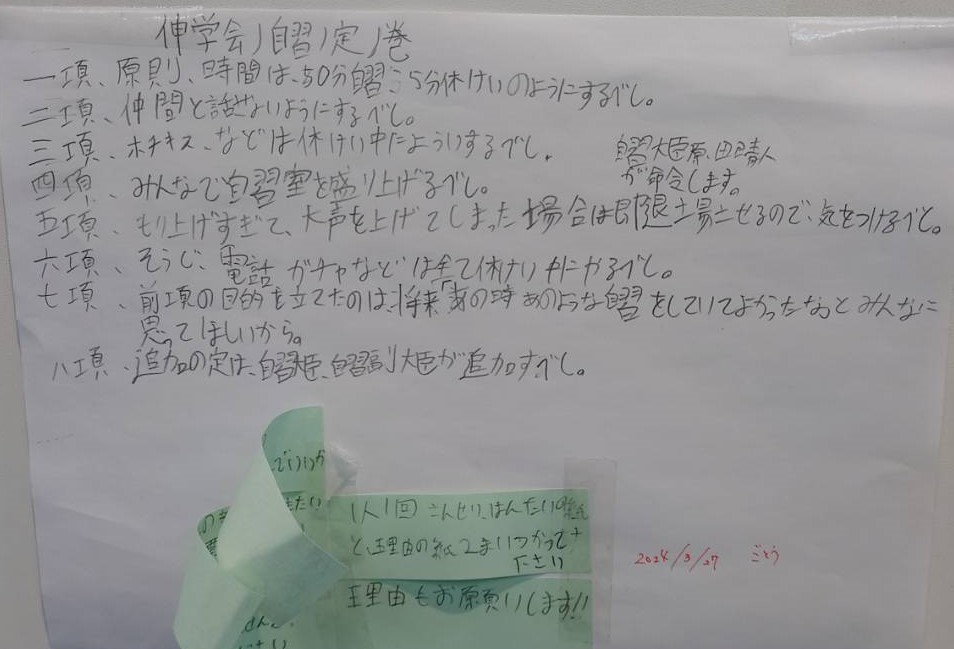 伸学会ノ自習ノ定ノ巻
一項、原則、時間は、50分自習:5分休けいのようにするべし。
二項、仲間と話せないようにするべし。
三項、ホチキス、などは休けい中によういするべし。
自習大臣原田晴人
が命令します。
四項、みんなで自習室を盛り上げるべし。
五項、もり上げすぎて、大声を上げてしまった場合は即退場させるので、気をつけるべし。
六項、そうじ、電話 ガチャなどは全て休けい中にやるべし。
七項、前項の目的を立てたのは、将来「あの時あのような自習をしていてよかったなっとみんなに
思ってほしいから。
八項、追加の定は、自習大臣、自習副大臣が追加すべし。
でいいか
たい
1人1回 さんせい、はんたいの
と、理由の紙2まいつかって
下さい
理由もお願いします!!
せん。
さい
2024/3/27 ごとう